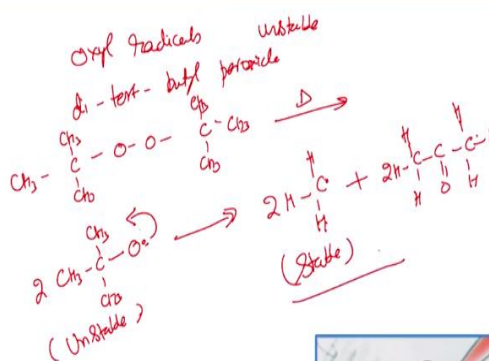 Oxyl radicals unstable
di-tert-butyl peroxide
CH3 CH3
CH3 - C - O - O - C - CH3 Δ
CH3 CH3
H H H
2H - C + 2H - C - C - C -
H H O H
CH3
2 CH3 - C - O•
CH3
(Unstable) (Stable)